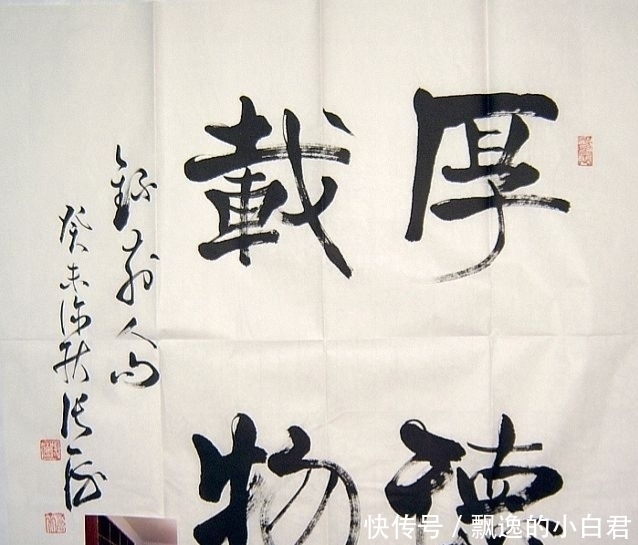 厚德
載物
錄前人句
癸未深秋張
快传号 / 飘逸的小白君